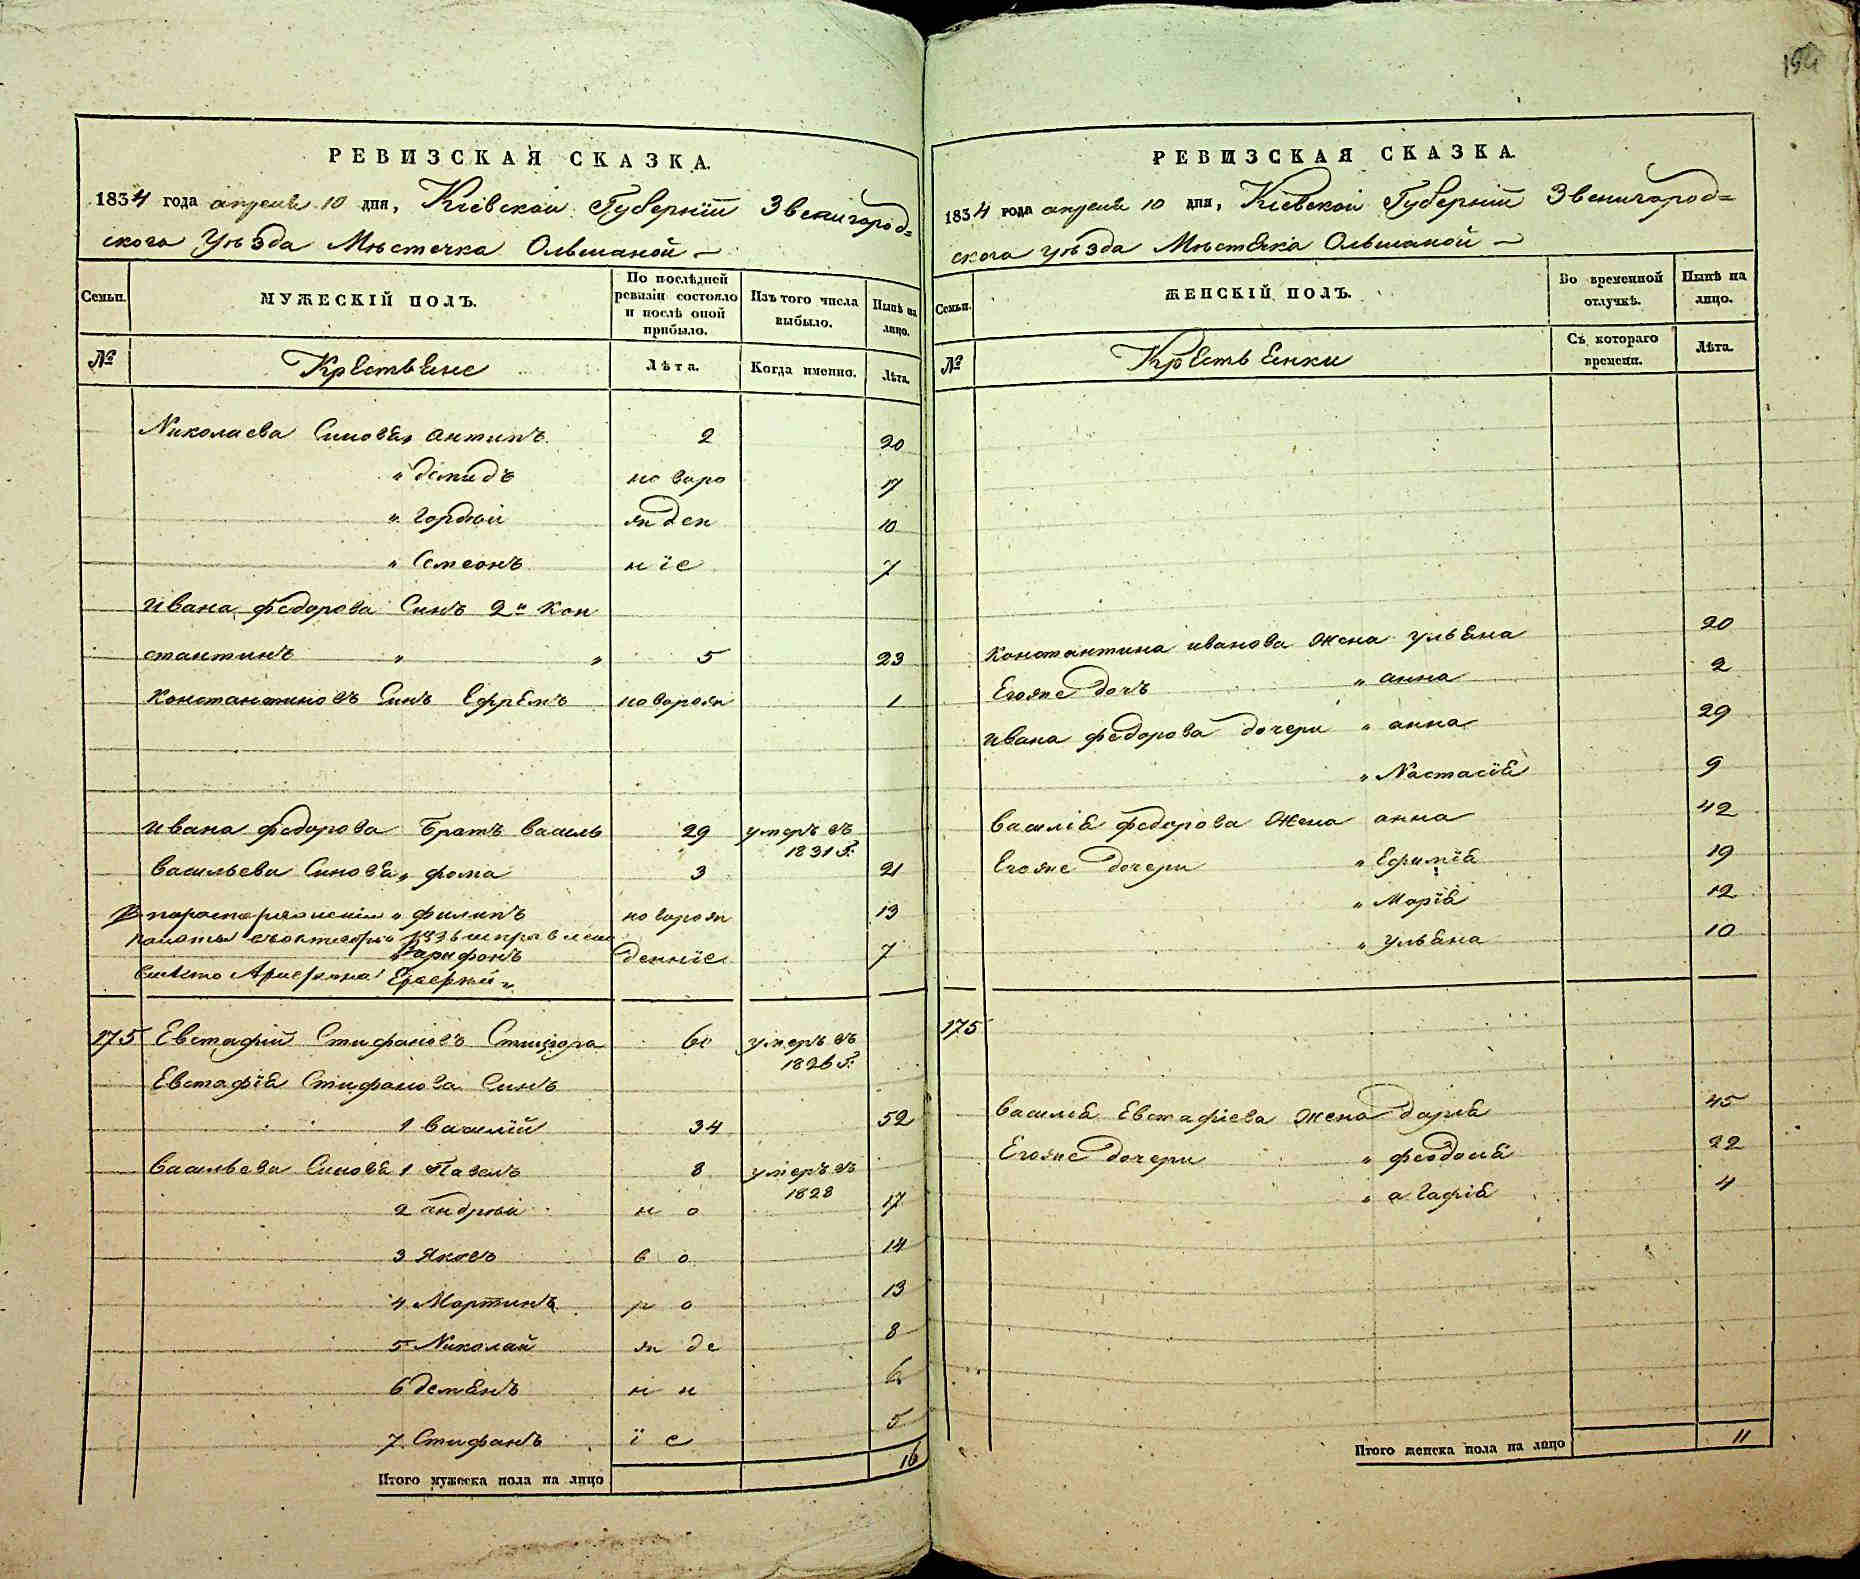 154
РЕВИЗСКАЯ СКАЗКА.
1834 года апреля 10 дня, Кіевской Губерніи Звенигород=
ского Уѣзда Мѣстечка Ольшаной
Семьи.
МУЖЕСКІЙ ПОЛЪ.
По послѣдней ревизіи состояло и послѣ оной прибыло.
Изъ того числа выбыло.
Нынѣ на лицо.
№
Крестьяне
Лѣта.
Когда именно.
Лѣта.
Николаева Синовя " антипъ 2 20
" демидъ но воро 17
" Гордѣй жден 10
" Семеонъ ніе 7
Ивана федорова Синъ 2й Кон
стантинъ " " 5 23
Константиновъ Синъ Ефремъ новорож 1
Ивана федорова Братъ Василь 29 умеръ въ
1831 г:
Васильеви Синовя " фома 3 21
" филипъ новорож 13
денніе 7
175 Евстафій Стифановъ 60 умеръ въ
1826 г:
Евстафія Стифанова Синъ
1 Василій 34 52
Васильева Синовя 1 Павелъ 8 умеръ въ
1828
2 андрѣй н о 17
3 Яковъ в о 14
4 Мартинъ р о 13
5 Николай ж де 8
6 демянъ н н 6
7 Стифанъ ї е 5
Итого мужеска пола на лицо 16
РЕВИЗСКАЯ СКАЗКА.
1834 года апреля 10 дня, Кіевской Губерніи Звенигород=
ского уѣзда Мѣстечка Ольшаной
Семьи.
ЖЕНСКІЙ ПОЛЪ.
Во временной отлучкѣ.
Нынѣ на лицо.
№
Крестьянки
Съ котораго времени.
Лѣта.
Константина иванова жена ульяна 20
Егоже дочъ " анна 2
Ивана федорова дочери " анна 29
" Настасія 9
Василія федорова жена анна 42
Егоже дочери " Ефимія 19
" Марія 12
" ульяна 10
175
Василія Евстафіева жена дарія 45
Егоже дочери " феодосія 22
" агафія 4
Итого женска пола на лицо 11